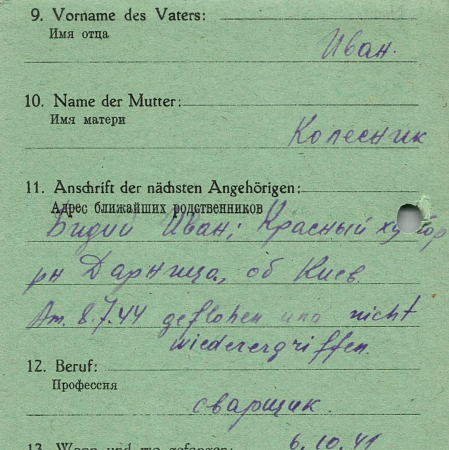 9. Vorname des Vaters:
Имя отца
Иван.
10. Name der Mutter:
Имя матери
Колесник
11. Anschrift der nächsten Angehörigen:
Адрес ближайших родственников
Бидий Иван; Красный хутор
рн Дарница, об Киев.
Am. 8.7.44 geflohen und nicht
wiederergriffen.
12. Beruf:
Профессия
сварщик.
13. Wann und wo gefangen:
6.10.41